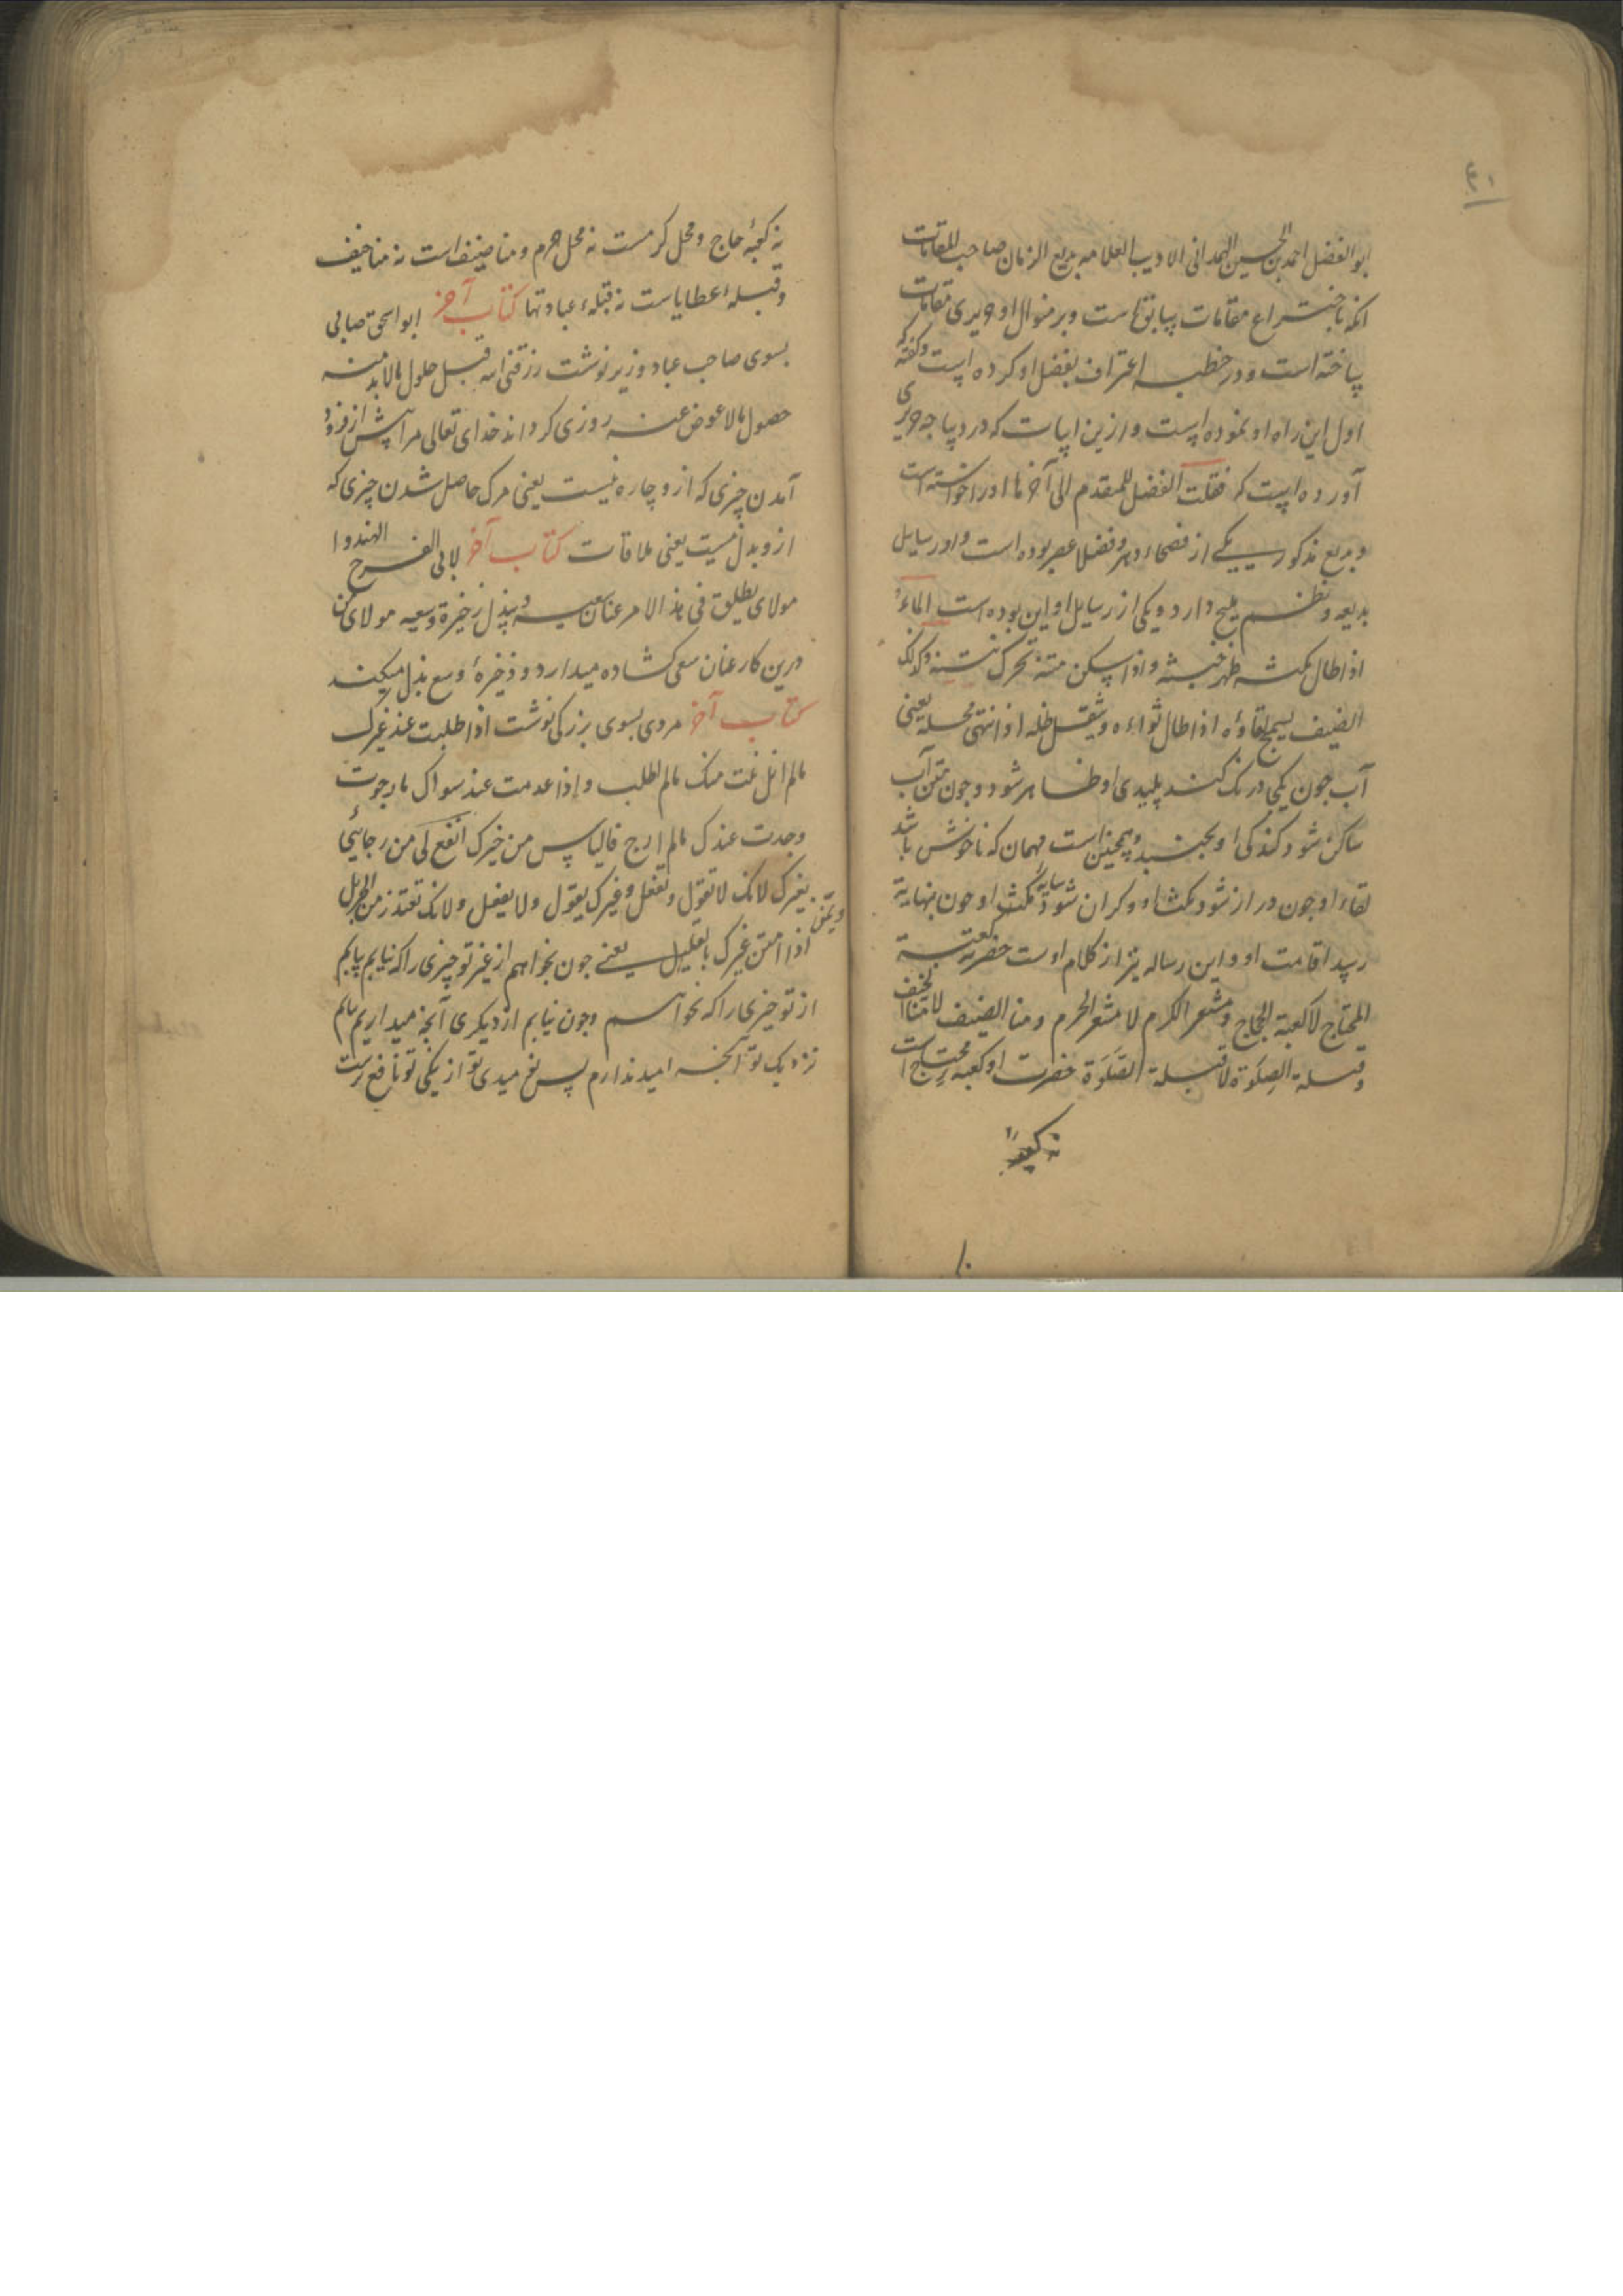 ۴۰
ابو الفضل احمد بن الحسین الهمدانی الادیب العلامه بدیع الزمان صاحب المقامات
انکه باختراع مقامات سابق است و بر منوال او حریری مقامات
ساخته است و در خطبه اعتراف بفضل او کرده است و گفته که
اول این راه او نموده است و ازین ابیات که در دیباجه حریری
آورده است که فقلت الفضل للمقدم الی آخرها او را خواسته است
و بدیع مذکور یکی از فصحاء دهر و فضلا عصر بوده است و او رسایل
بدیعه و نظم ملیح دارد و یکی از رسایل او این بوده است الماء
اذا طال مکثه ظهر خبثه و اذا سکن متنه تحرک نتنه و کذلک
الضیف یسمج لقاؤه اذا طال ثواءه و یثقل ظله اذا انتهی محله یعنی
آب جون یکی درنک کند پلیدی او ظاهر شود و جون متن آب
ساکن شود کندکی او بجنبد و همجنین است مهمان که ناخوش باشد
لقاء او جون دراز شود مکث او و کران شود سایه مکث او جون بنهایة
رسد اقامت او و این رساله نیز از کلام اوست حضرته کعبة
المحتاج لا کعبة الحجاج و مشعر الکرم لا مشعر الحرم و منا الضیف لا منا الخیف
و قبلة الصلوة لا قبلة الصلوة حضرت او کعبه محتاج است
نه کعبهٔ
نه کعبهٔ حاج و محل کرمست نه محل حرم و منا ضیف است نه منا خیف
و قبله اعطایاست نه قبلهء عبادتها کتاب آخر ابو اسحق صابی
بسوی صاحب عباد وزیر نوشت رزقنی الله قبل حلول مالا بد منه
حصول مالا عوض عنه روزی کرداند خدای تعالی مرا پیش از فرود
آمدن چیزی که ازو چاره نیست یعنی مرک حاصل شدن چیزی که
ازو بدل نیست یعنی ملاقات کتاب آخر لابی الفرح الهندوا
مولای یطلق فی هذا الامر عنان سعیه و یبذل ذخیرة وسعیه مولای من
درین کار عنان سعی کشاده میدارد و ذخیرهٔ وسع بذل میکند
کتاب آخر مردی بسوی بزرکی نوشت اذا طلبت عند غیرک
مالم انل نلت منک مالم اطلب و اذا عدمت عند سواک ما رجوت
وجدت عندک مالم ارج فالیاس من خیرک انفع لی من رجائی
بغیرک لانک لا تقول و تفعل و غیرک یقول و لا یفعل و لانک تعتذر من الجزیل
ویمتن
اذا امتن غیرک بالقلیل یعنی جون بخواهم از غیر تو چیزی را که نیابم یابم
از تو چیزی را که نخواهم و جون نیابم از دیکری آنجه میداریم یابم
نزدیک تو آنجه امید ندارم پس نومیدی تو از نیکی تو نافع ترست